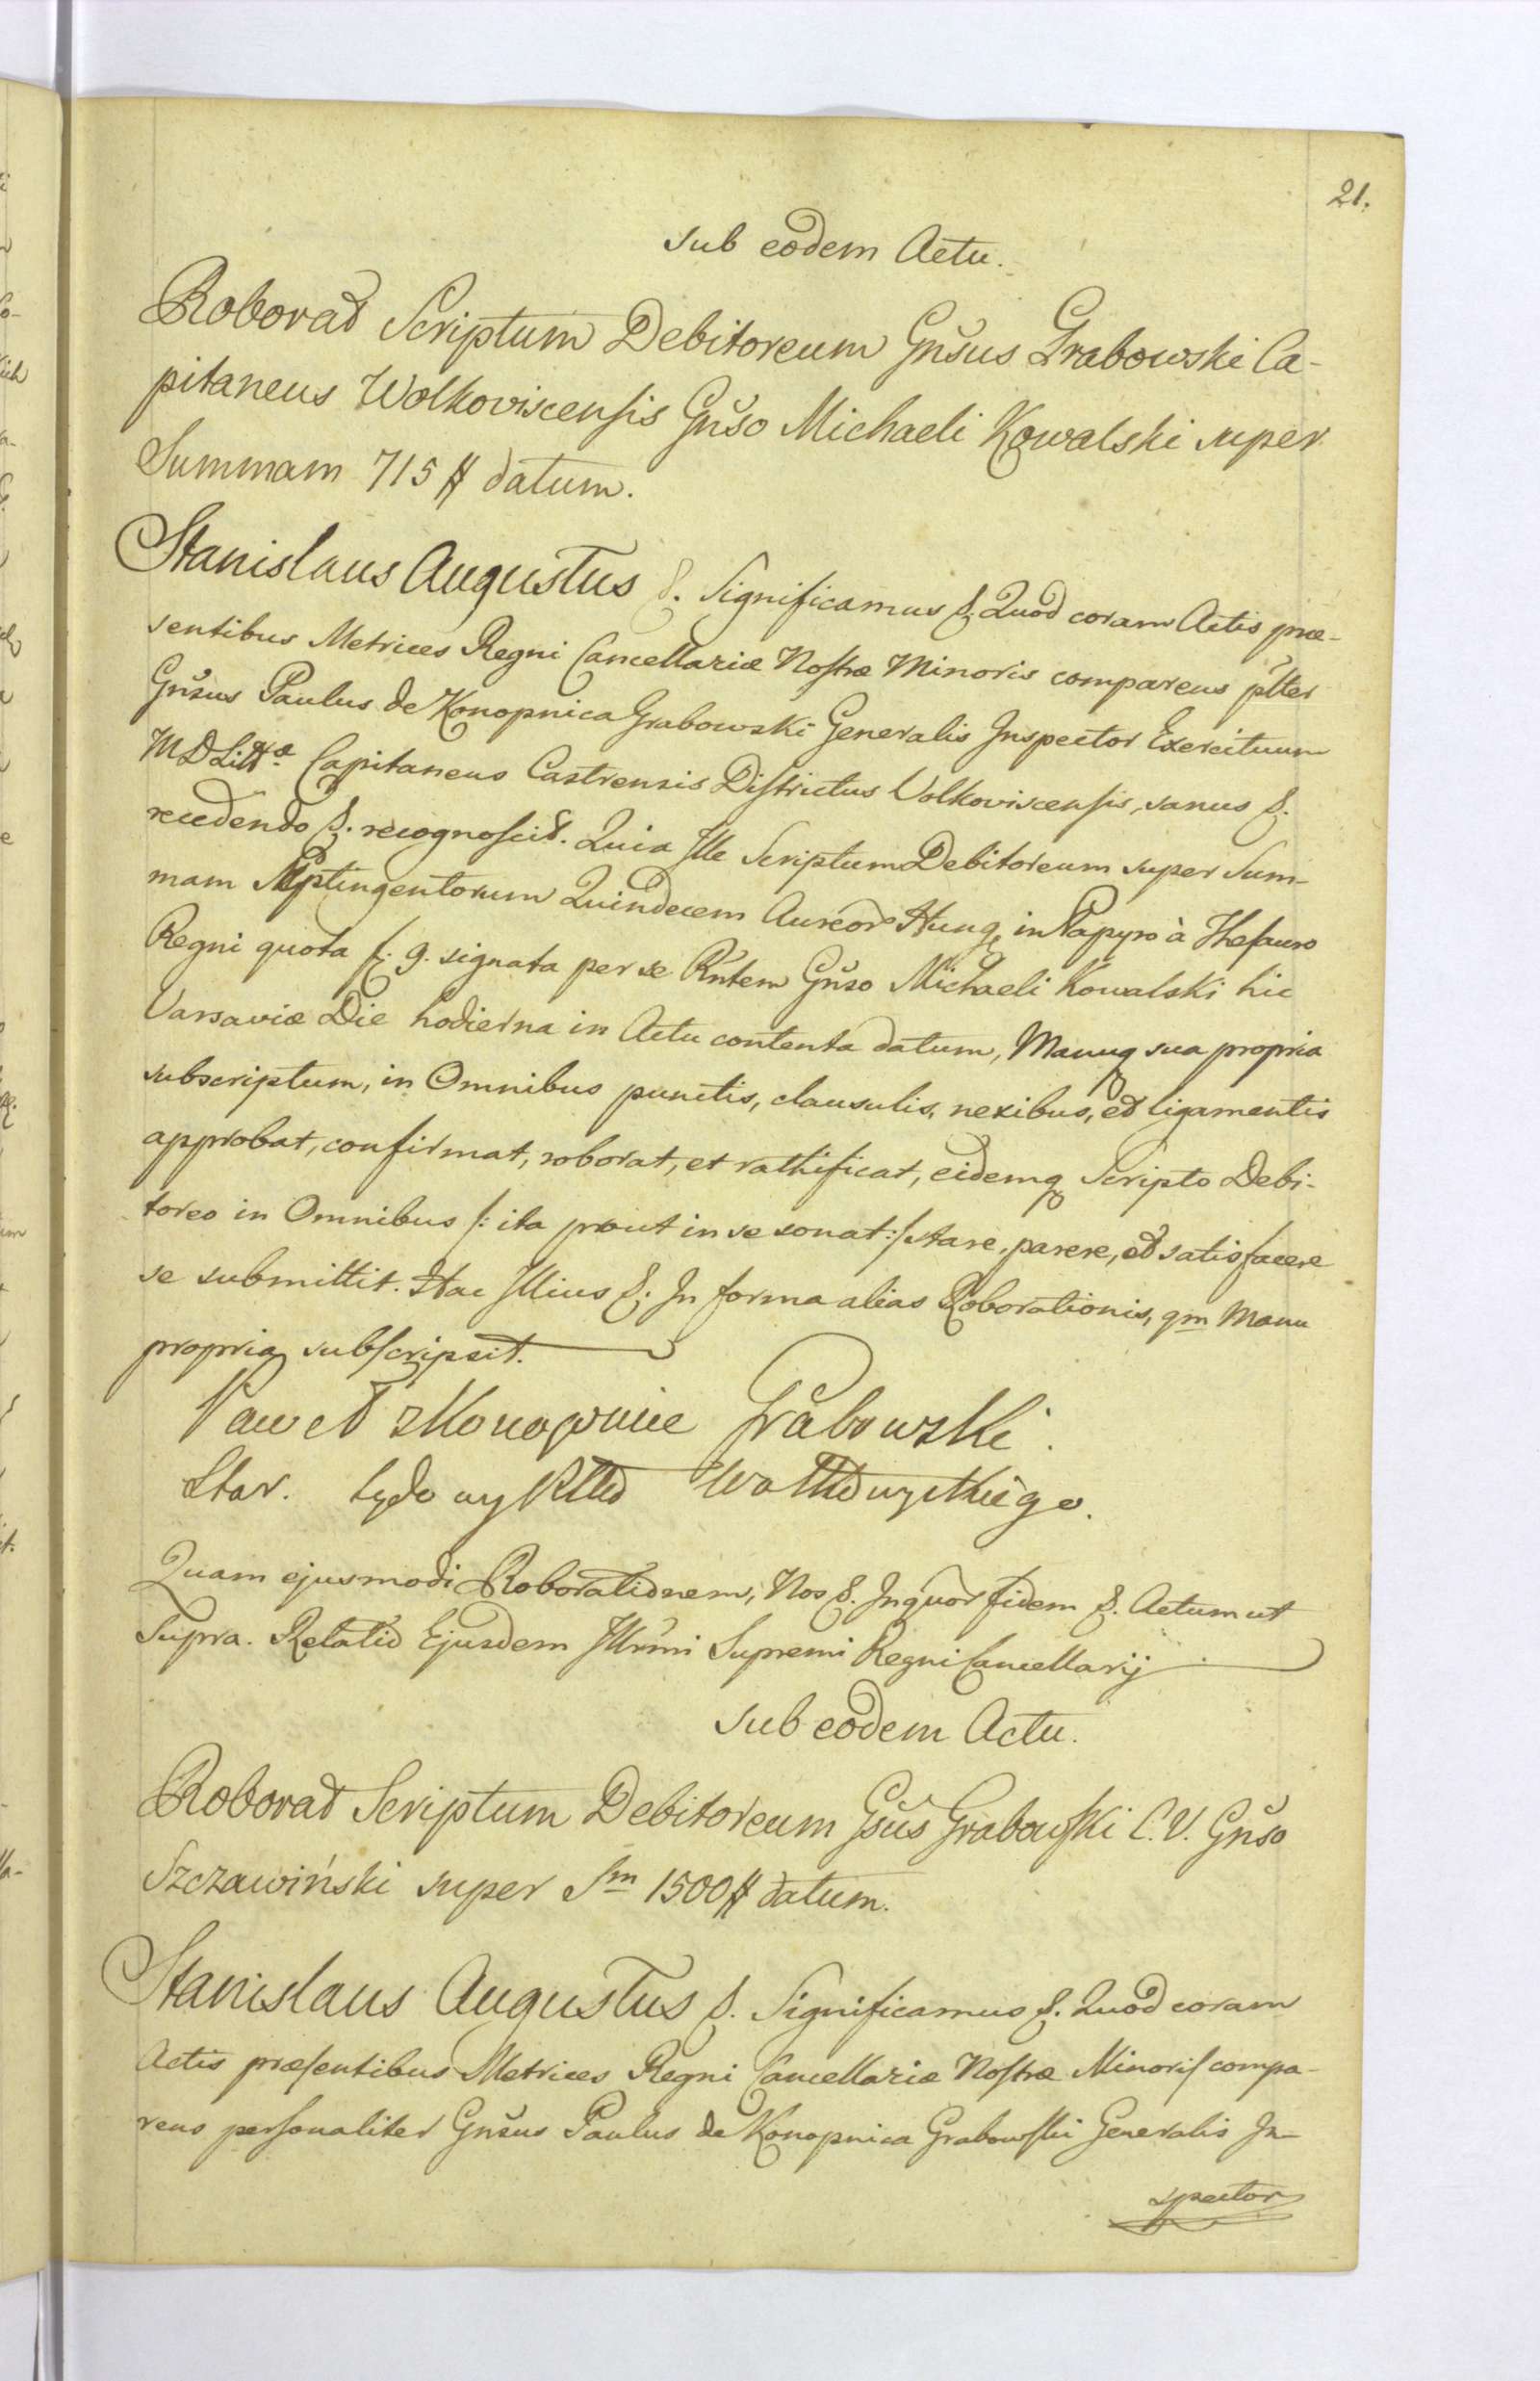 21.
sub eodem Actu.
Roborat Scriptum Debitoreum Gnšus Grabowski Ca-
pitaneus Wolkoviscensis Gnšo Michaeli Kowalski super
Summam 715 # datum.
Stanislaus Augustus &. Significamus &. Quod coram Actis præ-
sentibus Metrices Regni Cancellariæ Nostræ Minoris comparens pltter
Gnšus Paulus de Konopnica Grabowski Generalis Inspector Exercituum
M D Litt. Capitaneus Castrensis Districtus Volkoviscensis, sanus &.
recedendo &. recognoscit. Quia Ille Scriptum Debitoreum super Sum-
mam Septingentorum Quindecem Aureor Hung, in Papyro à Thesauro
Regni quota f. 9. signata per se Rntem Gnšo Michaeli Kowalski hic
Varsaviæ Die hodierna in Actu contenta datum, Manuq sua propria
subscriptum, in Omnibus punctis, clausulis, nexibus, et ligamentis
approbat, confirmat, roborat, et rathificat, eidemq Scripto Debi-
toreo in Omnibus /: ita prout in se sonat :/ stare, parere, et satisfacere
se submittit. Hac Illius &. In forma alias Roborationis, qm Manu
propria subscripsit.
Paweł z Konopnice Grabowski.
Star. Wołkowyskiego.
Quam ejusmodi Roborationem, Nos &. Inquor fidem &. Actum ut
Supra. Relatio Ejusdem Illrmi Supremi Regni Cancellarij
sub eodem Actu.
Roborat Scriptum Debitoreum Gšus Grabowski C. V. Gnšo
Szczawiński super Sm 1500 # datum.
Stanislaus Augustus &. Significamus &. Quod coram
Actis præsentibus Metrices Regni Cancellariæ Nostræ Minoris compa-
rens personaliter Gnšus Paulus de Konopnica Grabowski Generalis In-
spector